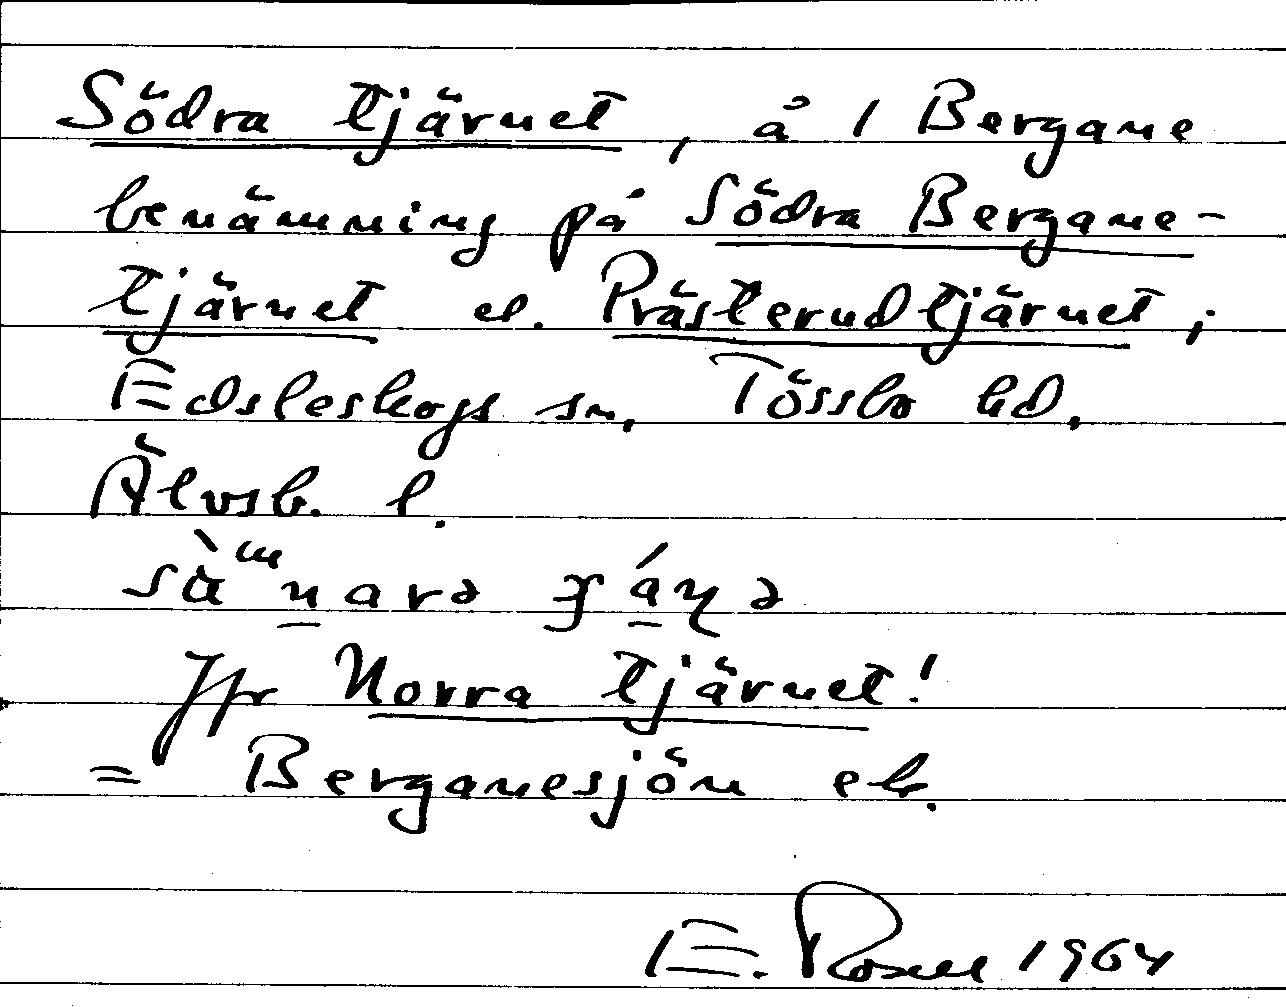 Södra tjärnet, å 1 Bergane
benämning på Södra Bergane-
tjärnet el. Prästerudtjärnet,
Edsleskogs sn, Tössbo hd,
Älvsb. l.
Jfr Norra tjärnet!
= Berganesjön ek.
E. Rosell 1964